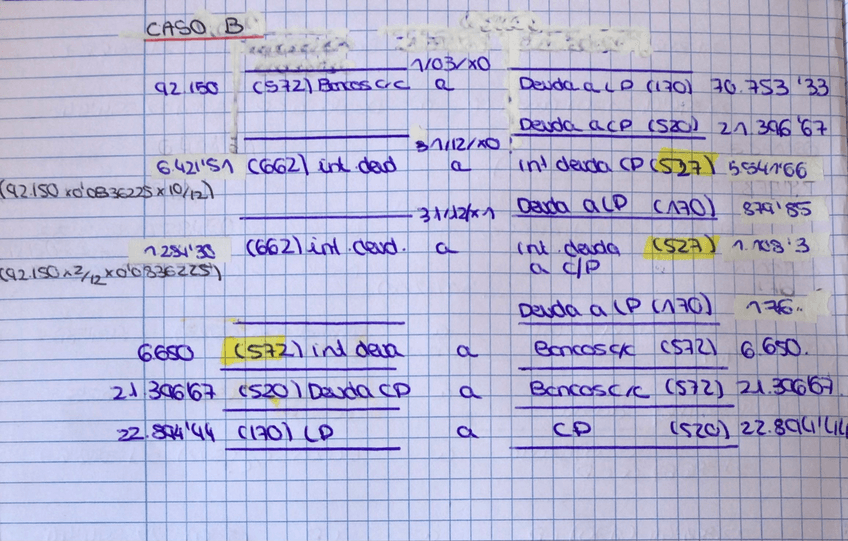 CASO B
1/03/x0
92.150 (572) Bancos c/c a Deuda a LP (170) 70.753'33
Deuda a CP (520) 21.396'67
31/12/x0
6421'51 (662) int deud a int deuda CP (527) 5541'66
(92.150 x 0'0836225 x 10/12)
Deuda a LP (170) 879'85
31/12/x1
1284'30 (662) int. deud. a int. deuda (527) 1.108'3
(92.150 x 2/12 x 0'0836225) a c/P
Deuda a LP (170) 176
6650 (572) int deua a Bancos c/c (572) 6.650.
21.396'67 (520) Deuda CP a Bancos c/c (572) 21.396'67
22.894'44 (170) LP a CP (520) 22.894'44